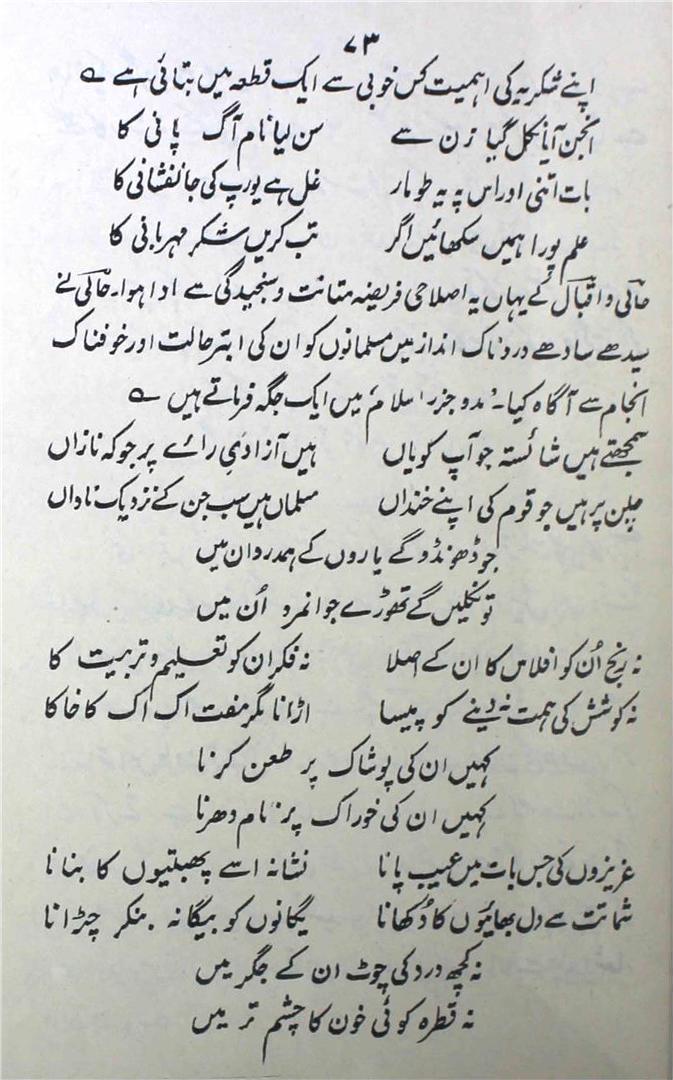 ۷۳
اپنے شکریہ کی اہمیت کس خوبی سے ایک قطعہ میں بتائی ہے ؎
انجن آیا نکل گیا زن سے سن لیا نام آگ پانی کا
بات اتنی اور اس پہ یہ طومار غل ہے یورپ کی جانفشانی کا
علم پورا ہمیں سکھائیں اگر تب کریں شکر مہربانی کا
حالی و اقبال کے یہاں یہ اصلاحی فریضہ متانت و سنجیدگی سے ادا ہوا۔ حالی نے
سیدھے سادھے دردناک انداز میں مسلمانوں کو ان کی ابتر حالت اور خوفناک
انجام سے آگاہ کیا۔ ’مدوجزر اسلام‘ میں ایک جگہ فرماتے ہیں ؎
سمجھتے ہیں شائستہ جو آپ کو یاں ہیں آزادیِ رائے پر جو کہ نازاں
چلن پر ہیں جو قوم کی اپنے خنداں مسلماں ہیں سب جن کے نزدیک ناداں
جو ڈھونڈو گے یاروں کے ہمدرد ان میں
تو نکلیں گے تھوڑے جوانمرد اُن میں
نہ رنج اُن کو افلاس کا ان کے اصلا نہ فکر ان کو تعلیم و تربیت کا
نہ کوشش کی ہمت نہ دینے کو پیسا اڑانا مگر مفت اک اک کا خاکا
کہیں ان کی پوشاک پر طعن کرنا
کہیں ان کی خوراک پر نام دھرنا
عزیزوں کی جس بات میں عیب پانا نشانہ اسے پھبتیوں کا بنانا
شماتت سے دل بھائیوں کا دُکھانا یگانوں کو بیگانہ بنکر چڑانا
نہ کچھ درد کی چوٹ ان کے جگر میں
نہ قطرہ کوئی خون کا چشم تر میں